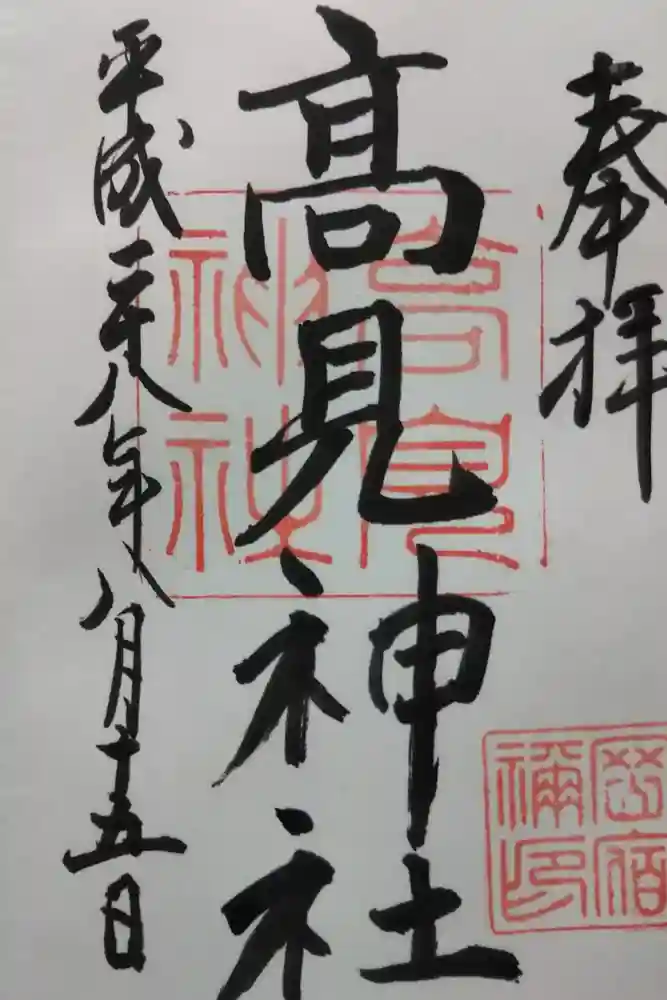 奉拝
髙見神社
平成二十八年八月十五日
高見
神社